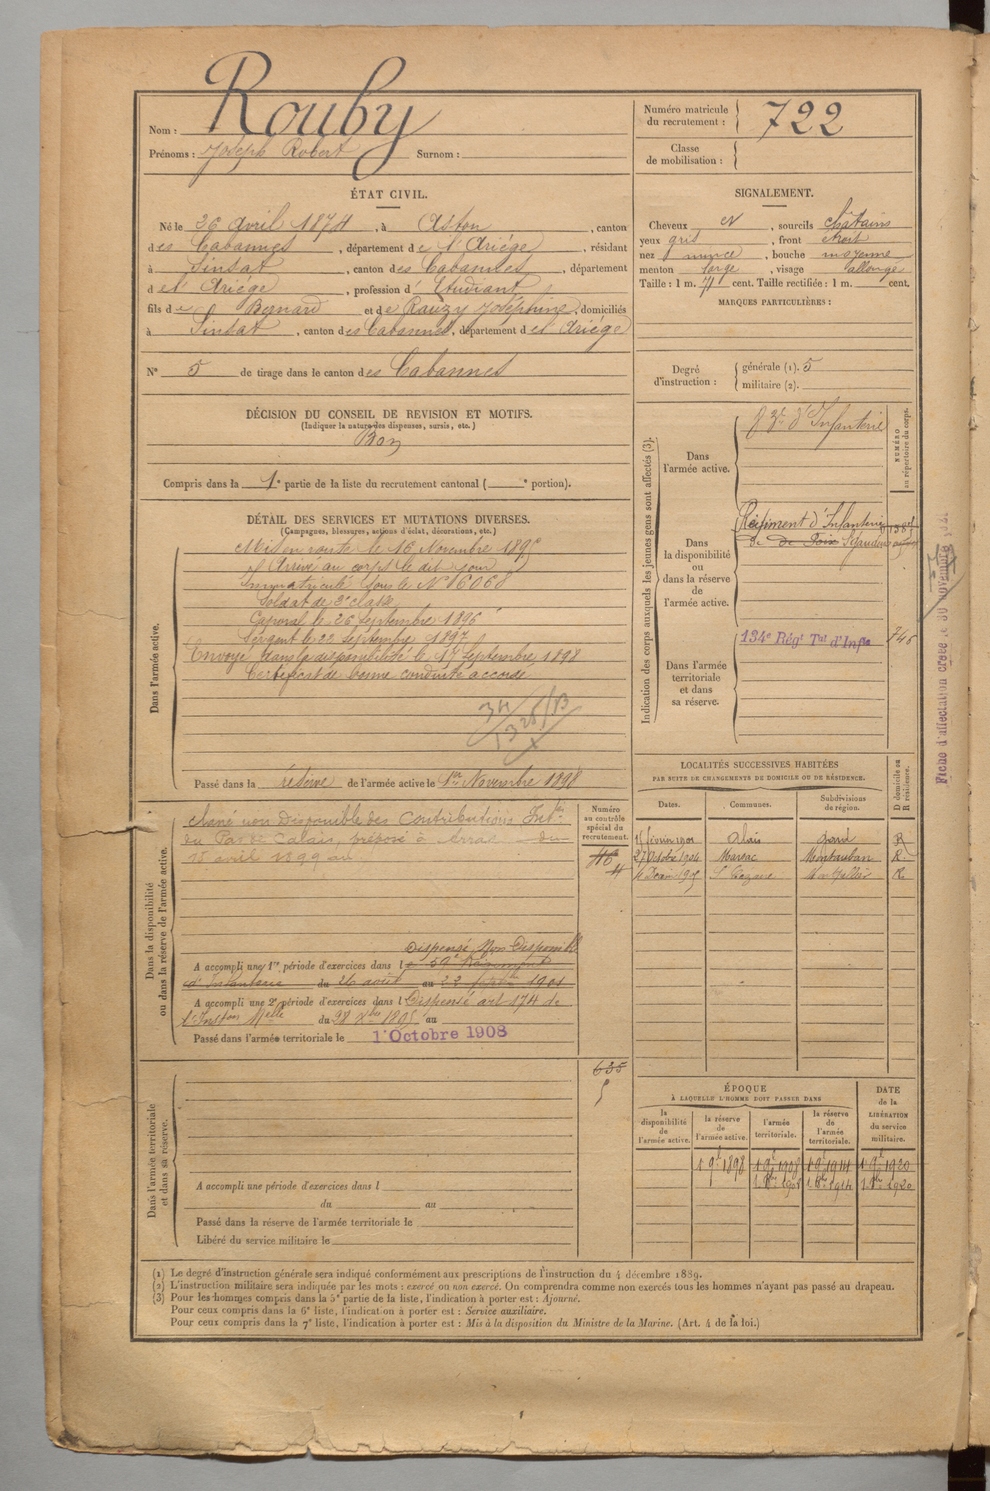 Nom : Rouby
Prénoms : Joseph Robert Surnom :
Numéro matricule du recrutement : 722
Classe de mobilisation :
ÉTAT CIVIL.
Né le 26 avril 1874, à Aston, canton
des Cabannes, département de l'Ariège, résidant
à Sinsat, canton des Cabannes, département
de l'Ariège, profession d' Etudiant
fils de Bernard et de Rauzy Joséphine, domiciliés
à Sinsat, canton des Cabannes, département de l'Ariège
N° 5 de tirage dans le canton des Cabannes
SIGNALEMENT.
Cheveux N, sourcils châtains
yeux gris, front étroit
nez mince, bouche moyenne
menton large, visage allongé
Taille : 1 m. 71 cent. Taille rectifiée : 1 m. cent.
MARQUES PARTICULIÈRES :
Degré d'instruction : générale (1). 5
militaire (2).
DÉCISION DU CONSEIL DE REVISION ET MOTIFS.
(Indiquer la nature des dispenses, sursis, etc.)
Bon
Compris dans la 1e partie de la liste du recrutement cantonal ( e portion).
DÉTAIL DES SERVICES ET MUTATIONS DIVERSES.
(Campagnes, blessures, actions d'éclat, décorations, etc.)
Dans l'armée active.
Mis en route le 16 Novembre 1895
Arrivé au corps le dit jour
Immatriculé sous le N° 6068
Soldat de 2e classe
Caporal le 26 septembre 1896
Sergent le 22 septembre 1897
Envoyé dans la disponibilité le 17 septembre 1898
Certificat de bonne conduite accordé
Passé dans la réserve de l'armée active le 1er Novembre 1898
Indication des corps auxquels les jeunes gens sont affectés (3).
NUMÉRO au répertoire du corps.
Dans l'armée active.
d'Infanterie
Dans la disponibilité ou dans la réserve de l'armée active.
Régiment d'Infanterie
de Foix
Dans l'armée territoriale et dans sa réserve.
134e Régt Tal d'Infie
Fiche d'affectation créée le 30 novembre
Dans la disponibilité ou dans la réserve de l'armée active.
Numéro au contrôle spécial du recrutement.
Classé non Disponible des Contributions Indtes
du Pas de Calais préposé à Arras du
15 avril 1899 au
Dispensé Non Disponible
A accompli une 1re période d'exercices dans le 59e Régiment
d'Infanterie du 26 août au 22 septbre 1901
A accompli une 2e période d'exercices dans l Dispensé art 174 de
l'Inston Melle du 28 Xbre 1895 au
Passé dans l'armée territoriale le 1er Octobre 1908
LOCALITÉS SUCCESSIVES HABITÉES
PAR SUITE DE CHANGEMENTS DE DOMICILE OU DE RÉSIDENCE.
D domicile ou R résidence.
Dates. Communes. Subdivisions de région.
février 1901 Alais Gard R
27 Octobre 1904 Montauban R.
R.
Dans l'armée territoriale et dans sa réserve.
635
A accompli une période d'exercices dans l
du au
Passé dans la réserve de l'armée territoriale le
Libéré du service militaire le
ÉPOQUE
À LAQUELLE L'HOMME DOIT PASSER DANS
DATE de la LIBÉRATION du service militaire.
la disponibilité de l'armée active. la réserve de l'armée active. l'armée territoriale. la réserve de l'armée territoriale.
1 9bre 1898 1 9bre 1908 1 9bre 1914 1 9bre 1920
1 8bre 1908 1 8bre 1914 1 8bre 1920
(1) Le degré d'instruction générale sera indiqué conformément aux prescriptions de l'instruction du 4 décembre 1889.
(2) L'instruction militaire sera indiquée par les mots : exercé ou non exercé. On comprendra comme non exercés tous les hommes n'ayant pas passé au drapeau.
(3) Pour les hommes compris dans la 5e partie de la liste, l'indication à porter est : Ajourné.
Pour ceux compris dans la 6e liste, l'indication à porter est : Service auxiliaire.
Pour ceux compris dans la 7e liste, l'indication à porter est : Mis à la disposition du Ministre de la Marine. (Art. 4 de la loi.)